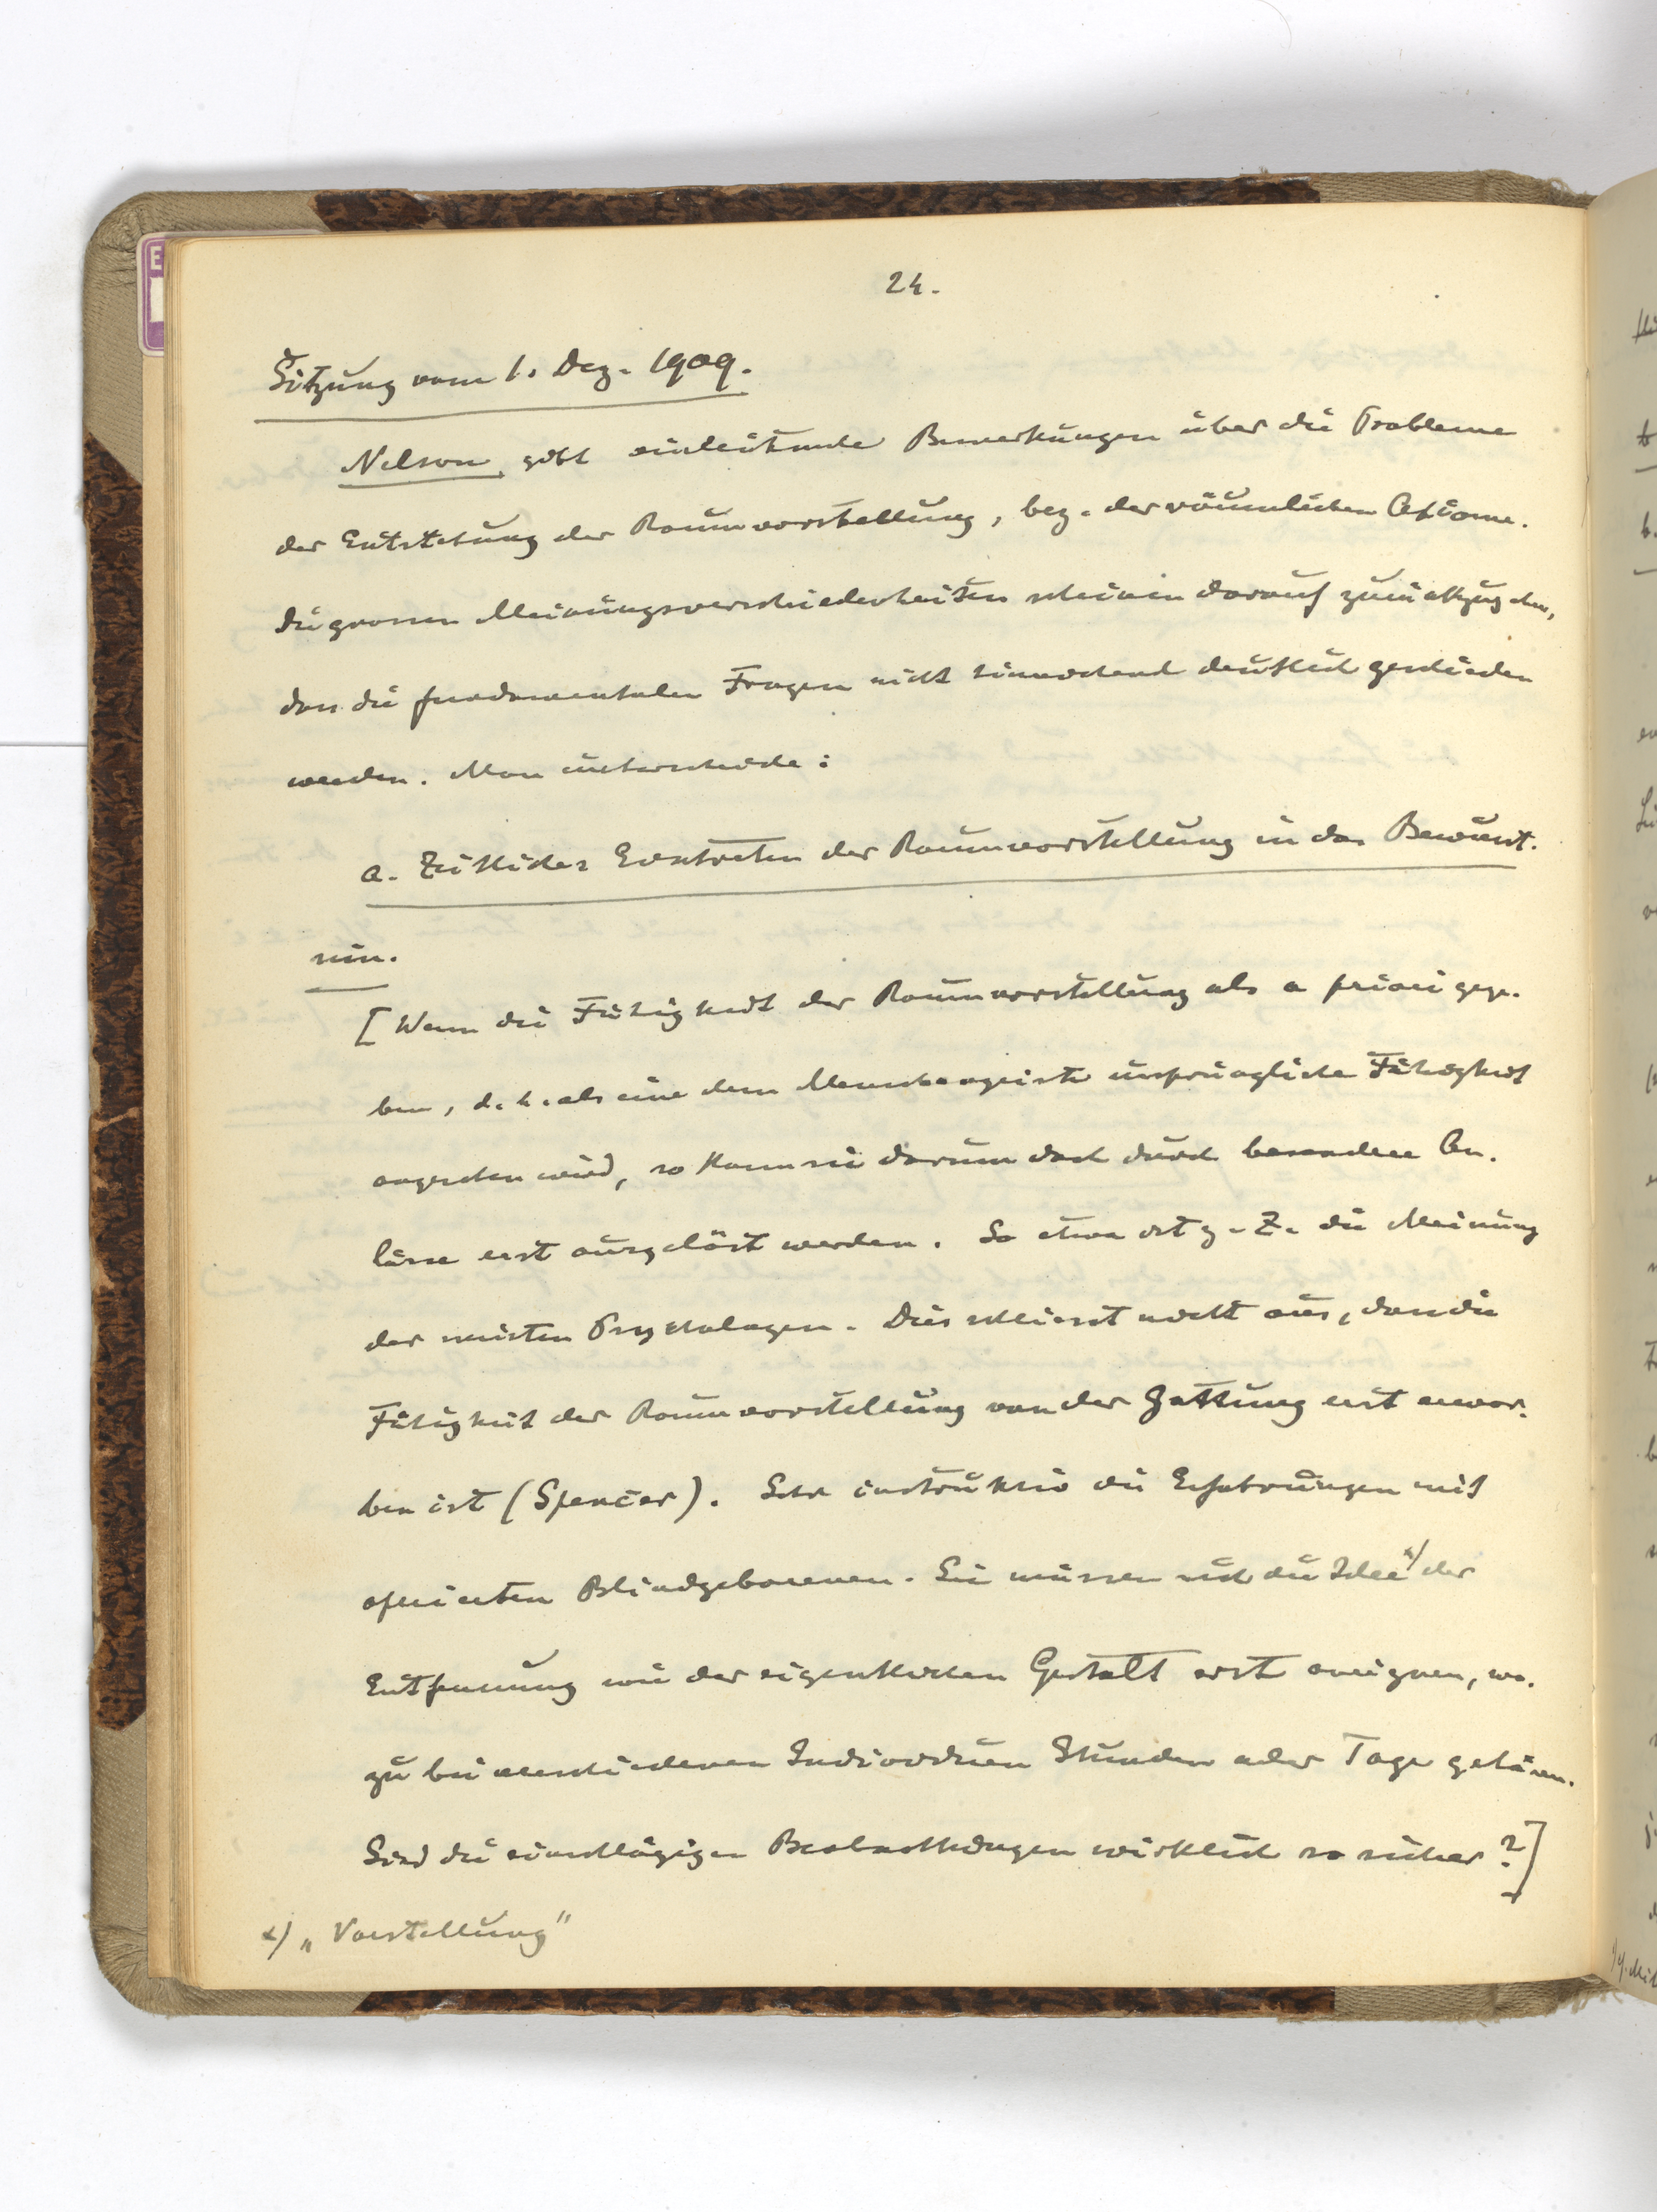 24.
Sitzung vom 1. Dez. 1909.
Nelson gibt einleitende Bemerkungen über die Probleme
der Entstehung der Raumvorstellung, bez. der räumlichen Axiome.
Die grossen Meinungsverschiedenheiten scheinen darauf zurückzugehen,
dass die fundamentalen Fragen nicht hinreichend deutlich geschieden
werden. Man unterscheide:
a. Zeitliches Eintreten der Raumvorstellung in das Bewusst-
sein.
[Wenn die Fähigkeit der Raumvorstellung als a priori gege-
ben, d. h. als eine dem Menschengeiste ursprüngliche Fähigkeit
angesehen wird, so kann sie darum doch durch besondere An-
lässe erst ausgelöst werden. So etwa ist z. Z. die Meinung
der meisten Psychologen. Dies schliesst nicht aus, dass die
Fähigkeit der Raumvorstellung von der Gattung erst erwor-
ben ist (Spencer). Sehr instruktiv die Erfahrungen mit
operierten Blindgeborenen. Sie müssen sich die Idee x) der
Entfernung wie der eigentlichen Gestalt erst aneignen, wo-
zu bei verschiedenen Individuen Stunden oder Tage gehören.
Sind die einschlägigen Beobachtungen wirklich so sicher?]
x) „Vorstellung"